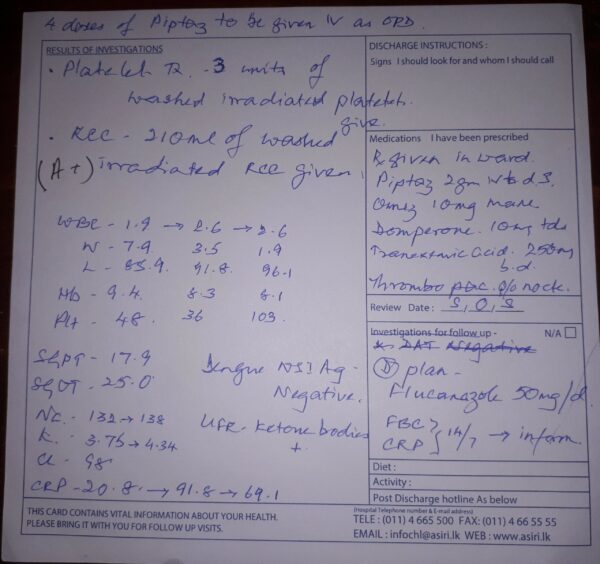 4 doses of Piptaz to be given IV as OPD.
RESULTS OF INVESTIGATIONS
• Platelet - 3 units of
washed irradiated platelets
give.
• RCC - 210ml of washed
(A+) irradiated RCC given.
WBC - 1.9 → 2.6 → 2.6
N - 7.9 3.5 1.9
L - 85.9. 91.8. 96.1
Hb - 9.4. 8.3 8.1
Plt - 48. 36 103.
SGPT - 17.9
SGOT - 25.0
Dengue NS1 Ag -
Negative.
Na. - 132 → 138
K. - 3.75 → 4.34
Cl - 98
UFR - Ketone bodies
+.
CRP - 20.8. → 91.8 → 69.1
THIS CARD CONTAINS VITAL INFORMATION ABOUT YOUR HEALTH.
PLEASE BRING IT WITH YOU FOR FOLLOW UP VISITS.
DISCHARGE INSTRUCTIONS :
Signs I should look for and whom I should call
Medications I have been prescribed
Rx given in ward.
Piptaz 2gm IV
Omez 10mg mane
Domperone. 10mg tds
Tranexamic acid. 250mg
b.d.
Thrombo nock.
Review Date : S.O.S
Investigations for follow up - N/A
DAT Negative
plan -
Flucanazole 50mg/d.
FBC
CRP } 14/7 → inform.
Diet :
Activity :
Post Discharge hotline As below
(Hospital Telephone number & E-mail address)
TELE : (011) 4 665 500 FAX: (011) 4 66 55 55
EMAIL : infochl@asiri.lk WEB : www.asiri.lk